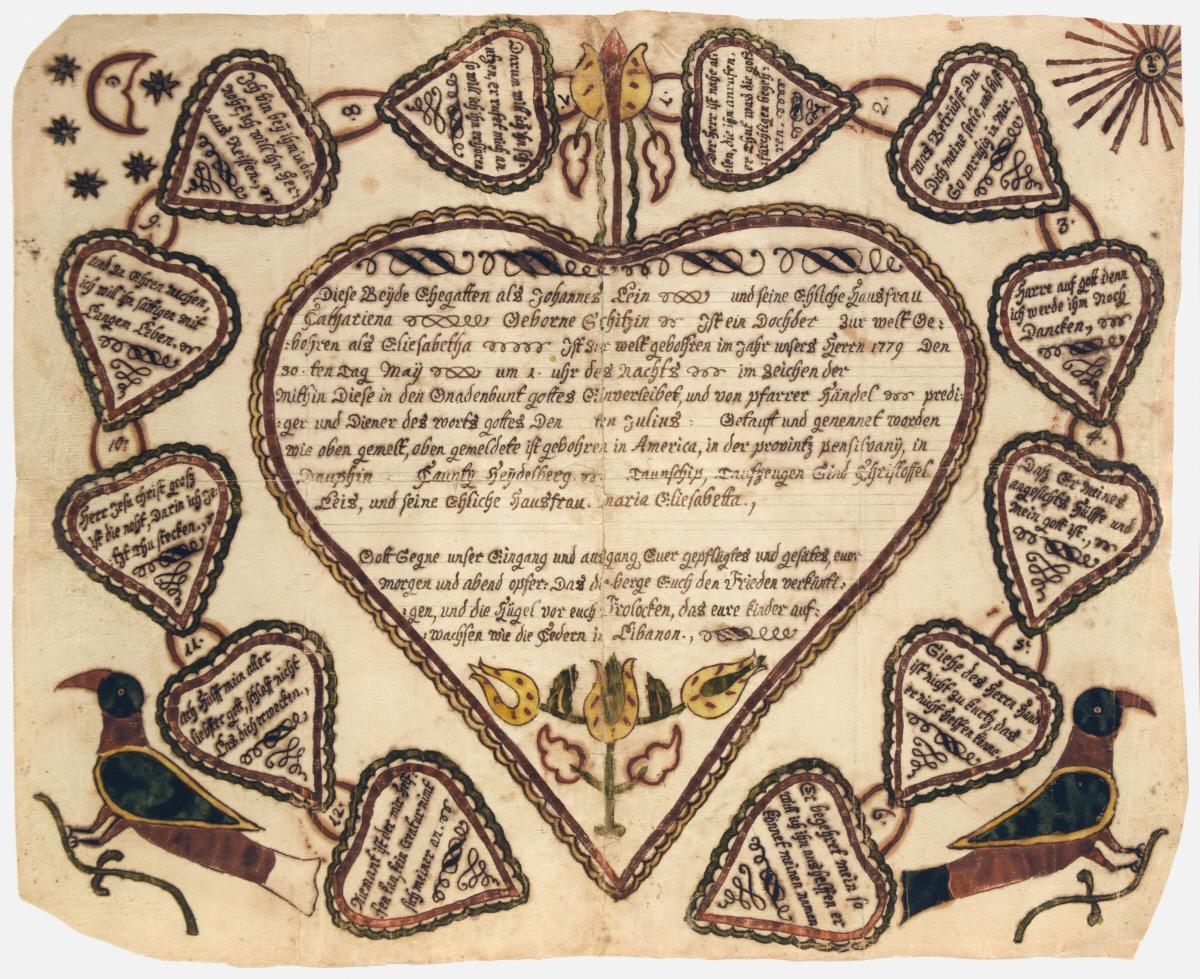 Diese Beyde Ehegatten als Johannes Lein und seine Ehliche Hausfrau
Cathariena Geborne Schitzin Ist ein Dochder Zur welt Ge:
:bohren als Eliesabetha Ist Zur welt gebohren im Jahr unsers Herrn 1779 Den
30. ten Tag May um 1. uhr des Nachts im Zeichen der
Mithin Diese in den Gnadenbunt gottes Einverleibet, und von pfarrer Händel predi:
:ger und Diener des worts gottes Den ten Julius: Getauft und genennet worden
wie oben gemelt, oben gemeldete ist gebohren in America, in der provintz pensilvany, in
Dauphin County Heydelberg Taunschip, Taufzeugen Sind Christoffel
Leis, und seine Ehliche Hausfrau. maria Eliesabetta.,
Gott Segne unser Eingang und ausgang, Euer gepflügtes und gesätes, euer
morgen und abend opfer: Das die berge Euch den Frieden verkünt:
:gen, und die Hügel vor euch Frolocken, das eure kinder auf:
:wachsen wie die Cedern in Libanon.,
1.
Der Herr ist nahe al:
len, die ihn anrufen,
er Thut was die got:
:fürchtigen begeh:
ren.
2.
Was Betrübst Du
Dich meine seele, und bist
So unruhig in mir.,
3.
Harre auf gott denn
ich werde ihm Noch
Dancken,
4.
Daß Er meines
angesichts Hülffe und
mein gott ist.,
5.
Siehe des Herrn Hand
ist nicht zu kurtz das
er nicht Helfen könne
6.
Er begehret mein so
will ich ihm aushelffen er
kennet meinen namen
7.
Darum will ich ihn sch:
ützen, er rufet mich an
so will ich ihn erhören
8.
Ich bin bey ihm in der
Noth, ich will ihn Her
aus Reissen,
9.
und zu Ehren machen,
ich will ihn sättigen mit
Langem Leben.
10.
Herr Jesu christ groß
ist die noht, Darin ich Je:
tzt Thu stecken.,
11.
ach Hülff mein aller
liebster gott, schlaff nicht
Las dich erwecken.,
12.
Niemant ist der mir helf:
fen kan, kein Creatur nimt
sich meiner an.